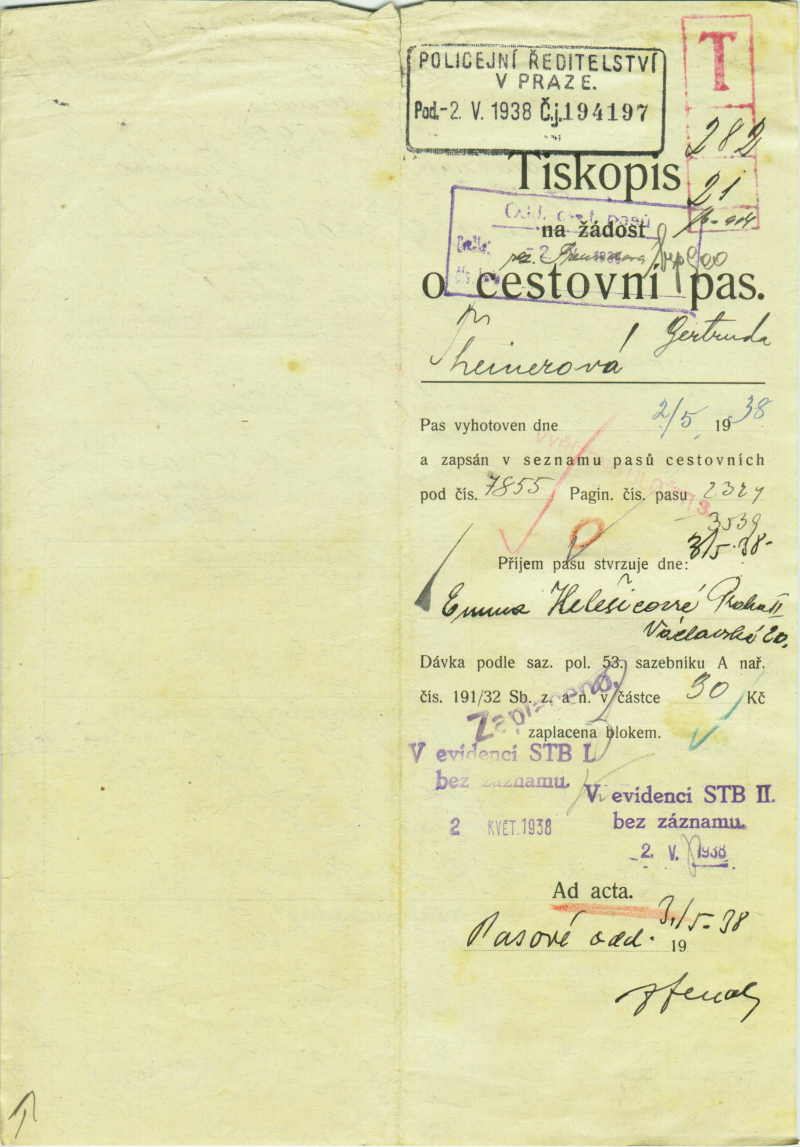 POLICEJNÍ ŘEDITELSTVÍ
V PRAZE.
Pod.-2. V. 1938 Č.j.194197
T
282
21
Tiskopis
na žádost
o cestovní pas.
Gertruda
Theinerová
Pas vyhotoven dne 2/5 1938
a zapsán v seznamu pasů cestovních
pod čís. 7855 Pagin. čís. pasu 2327
3539
3/5. 38-
Příjem pasu stvrzuje dne:
Emma Praha II
Václavské 20.
Dávka podle saz. pol. 53. sazebníku A nař.
čís. 191/32 Sb. z. a n. v částce 30 Kč
Zaplaceno.
zaplacena blokem.
V evidenci STB I.
bez záznamu.
2 KVĚT. 1938
V evidenci STB II.
bez záznamu.
-2. V. 1938
Ad acta.
Pasové odd. 3./5-38
19